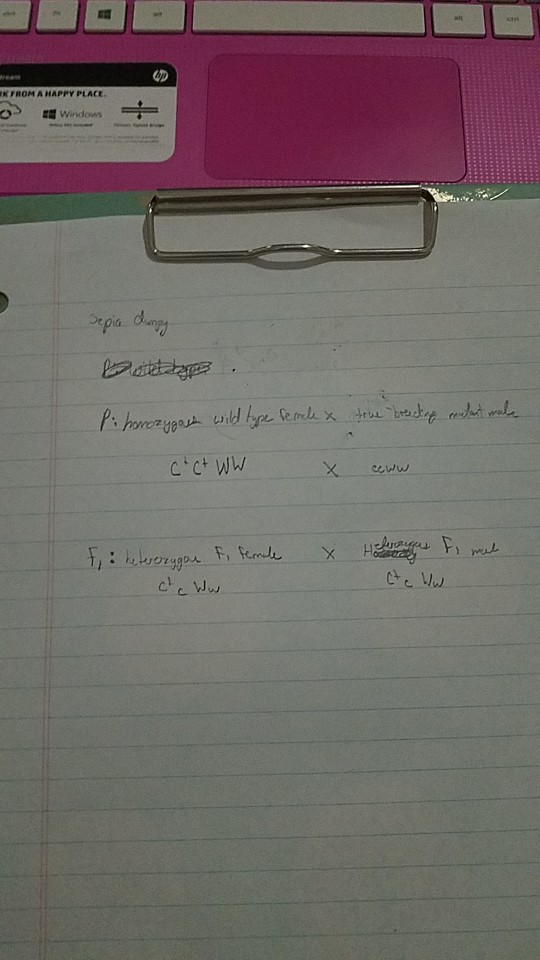 alt
alt
ctrl
tream
hp
RK FROM A HAPPY PLACE.
Windows
Sepia dumpy
P: homozygous wild type female x true breeding mutant male
C⁺C⁺ WW X ccww
F₁: heterozygous F₁ female X Heterozygous F₁ male
C⁺c Ww C⁺c Ww